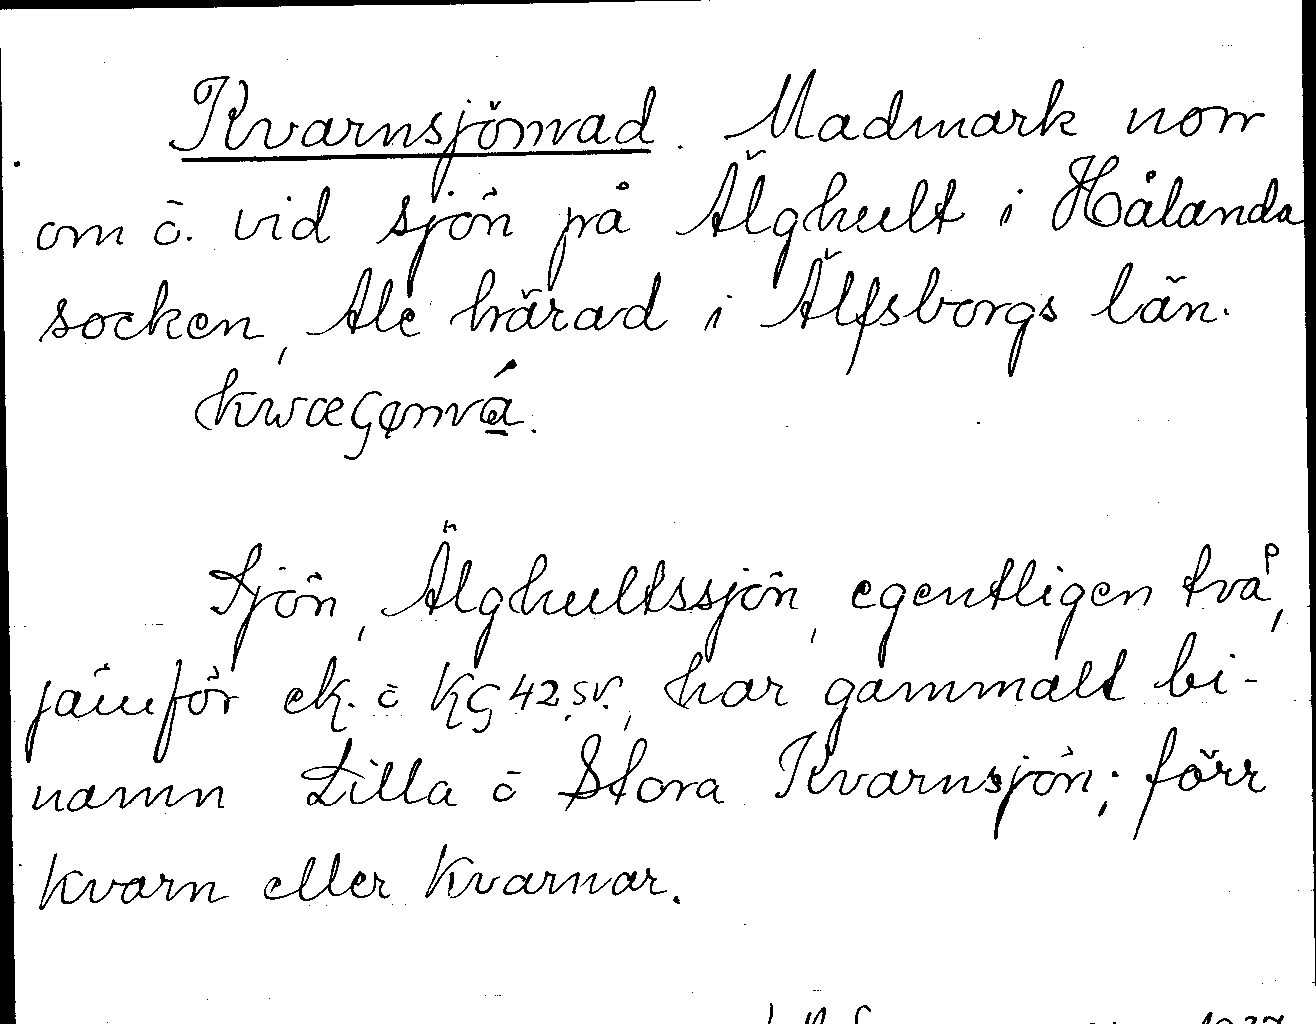 Kvarnsjömad. Madmark norr
om ō. vid sjön på Älghult i Hålanda
socken, Ale härad i Älfsborgs län.

Sjön, Älghultssjön, egentligen två,
jämför ek. ō KG 42 SV., har gammalt bi-
namn Lilla ō Stora Kvarnsjön; förr
kvarn eller kvarnar.